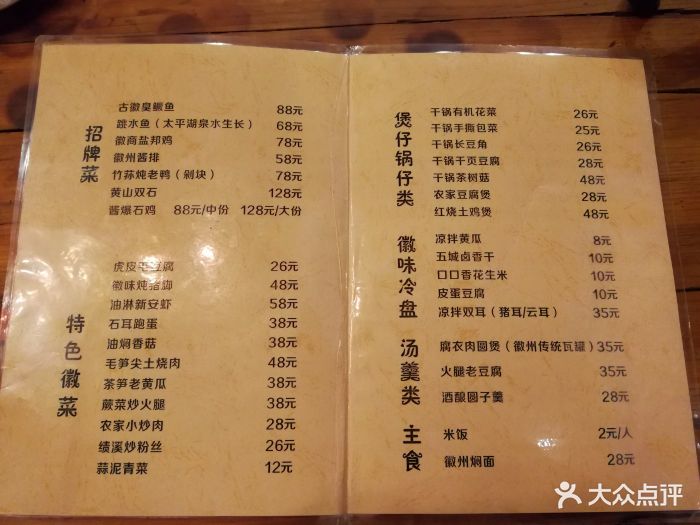 招牌菜
古徽臭鳜鱼 88元
跳水鱼（太平湖泉水生长） 68元
徽商盐邦鸡 78元
徽州酱排 58元
竹荪炖老鸭（剁块） 78元
黄山双石 128元
酱爆石鸡 88元/中份 128元/大份
特色徽菜
虎皮毛豆腐 26元
徽味炖猪脚 48元
油淋新安虾 58元
石耳跑蛋 38元
油焖香菇 38元
毛笋尖土烧肉 48元
茶笋老黄瓜 38元
蕨菜炒火腿 38元
农家小炒肉 28元
绩溪炒粉丝 26元
蒜泥青菜 12元
煲仔锅仔类
干锅有机花菜 26元
干锅手撕包菜 25元
干锅长豆角 26元
干锅千页豆腐 28元
干锅茶树菇 48元
农家豆腐煲 28元
红烧土鸡煲 48元
徽味冷盘
凉拌黄瓜 8元
五城卤香干 10元
口口香花生米 10元
皮蛋豆腐 10元
凉拌双耳（猪耳/云耳） 35元
汤羹类
腐衣肉圆煲（徽州传统瓦罐） 35元
火腿老豆腐 35元
酒酿圆子羹 28元
主食
米饭 2元/人
徽州焖面 28元
大众点评